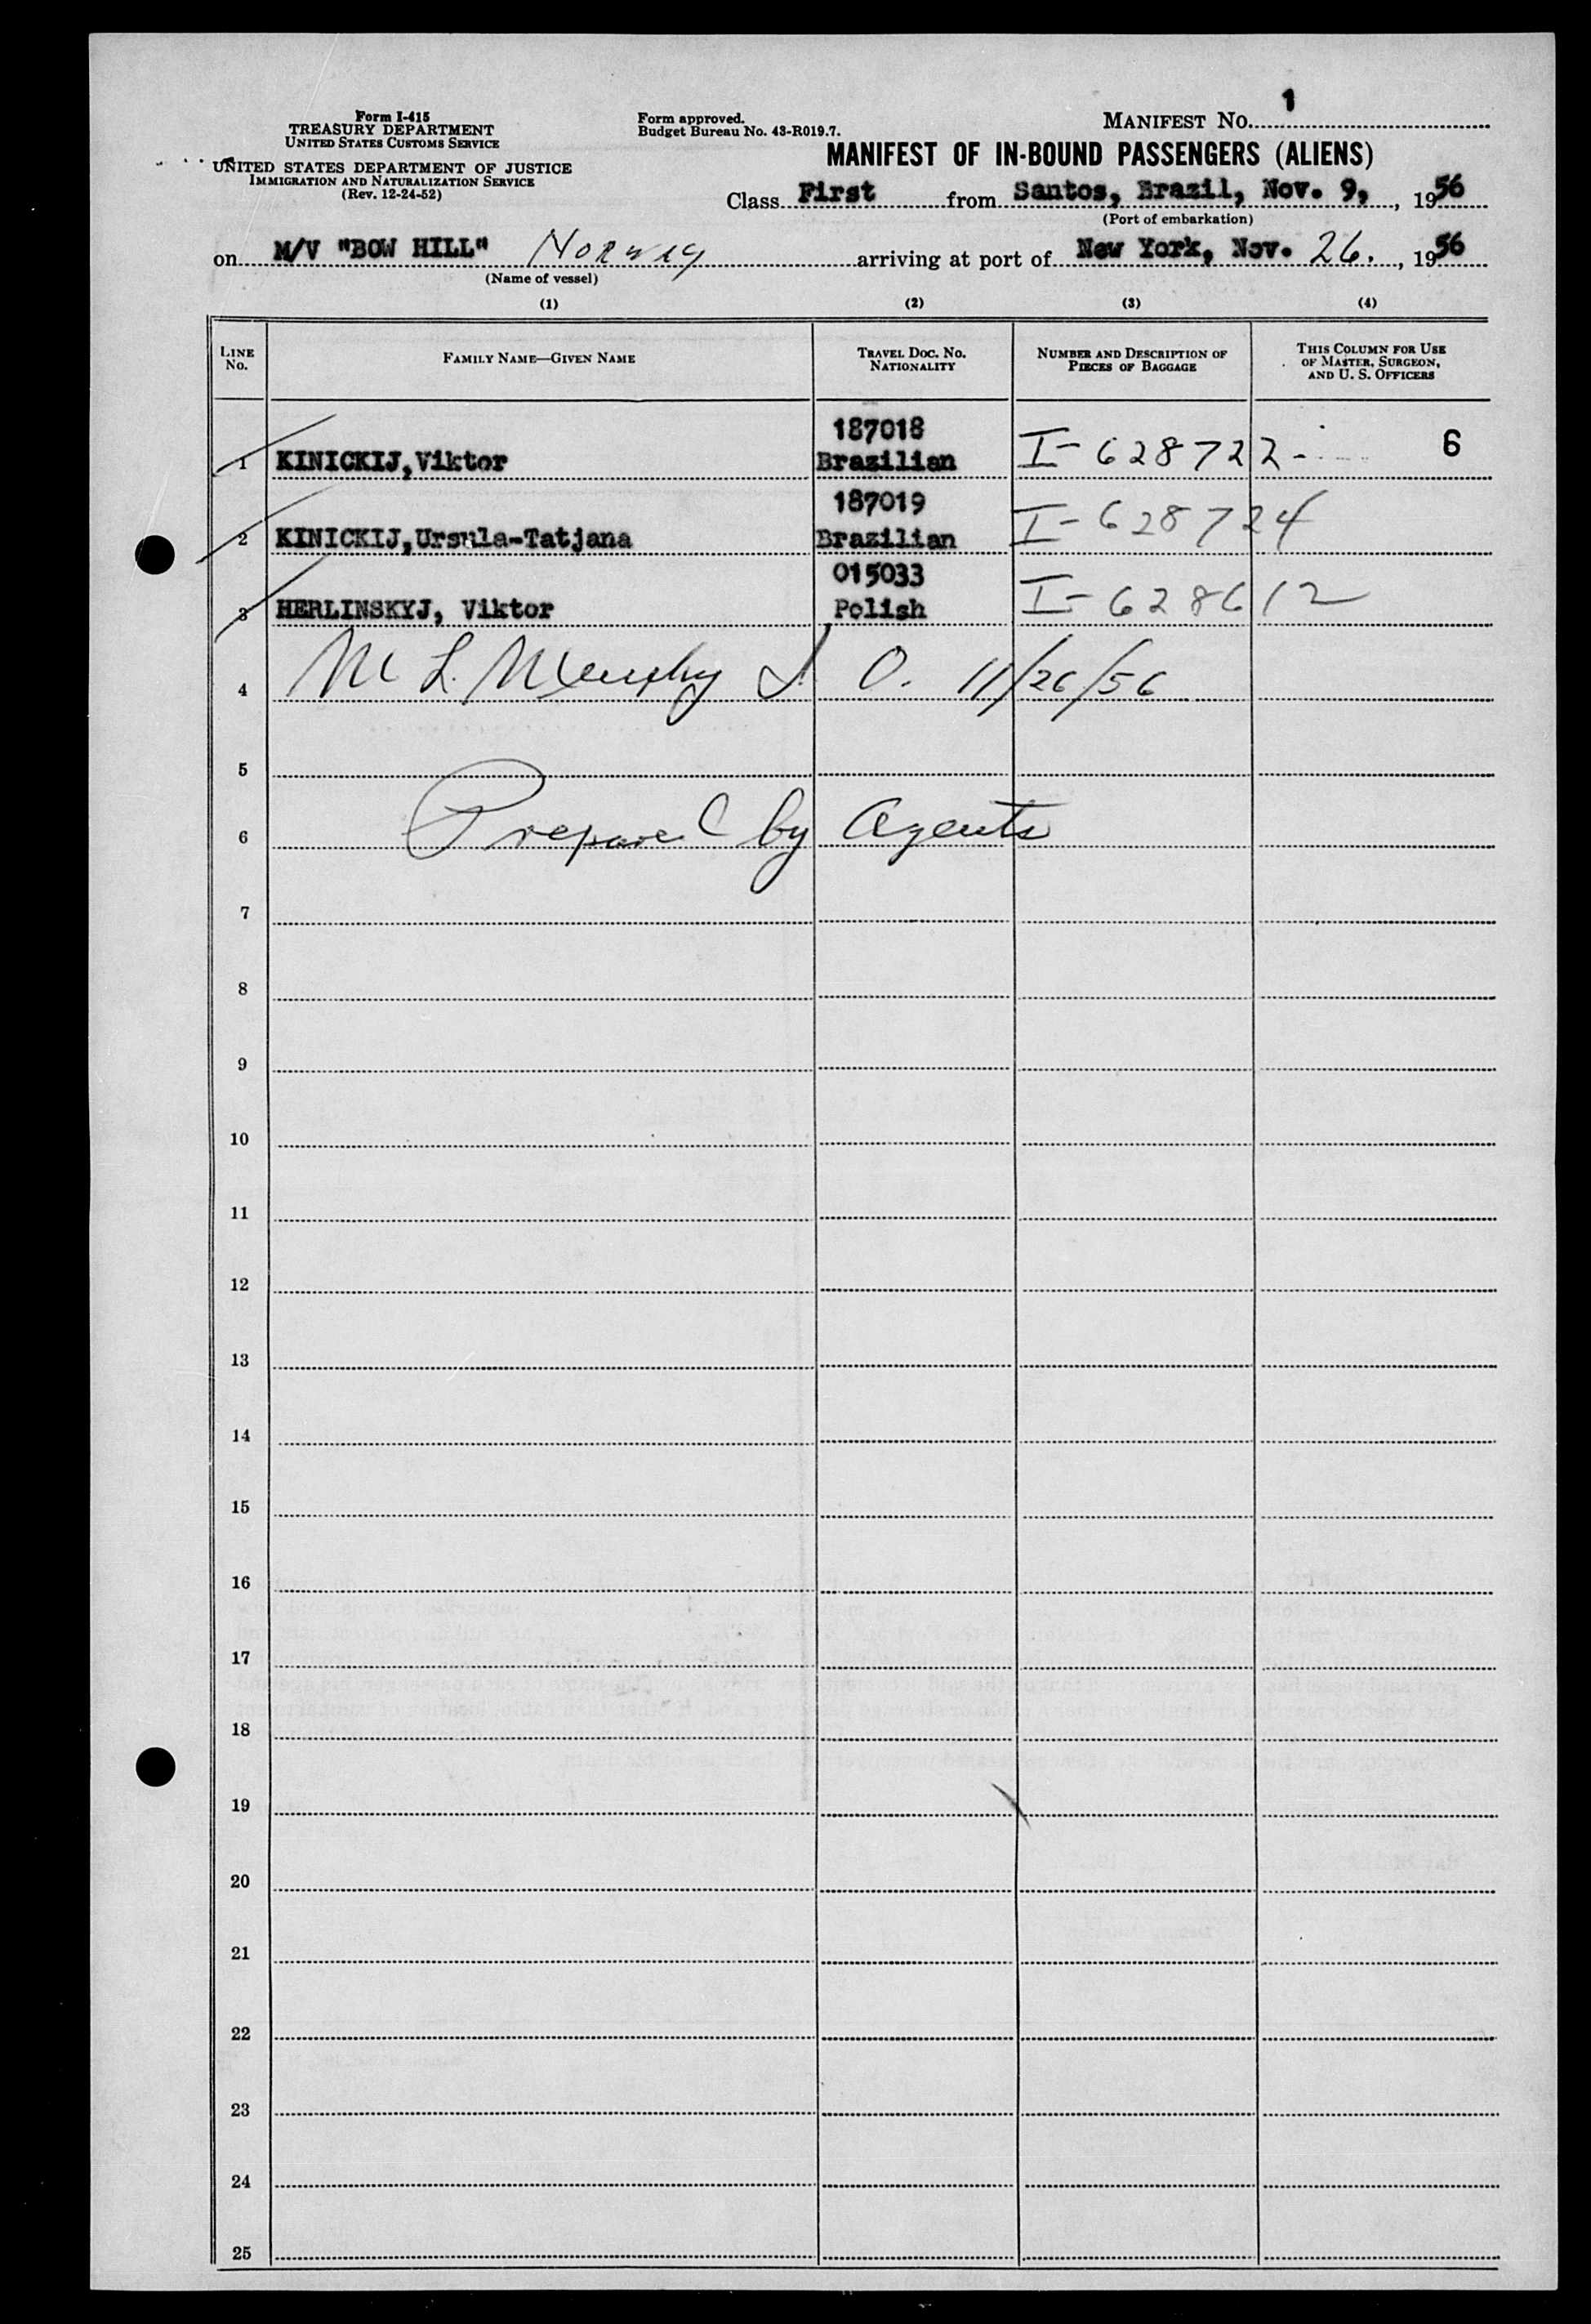 Form I-415
TREASURY DEPARTMENT
UNITED STATES CUSTOMS SERVICE
UNITED STATES DEPARTMENT OF JUSTICE
IMMIGRATION AND NATURALIZATION SERVICE
(Rev. 12-24-52)
Form approved.
Budget Bureau No. 43-R019.7.
MANIFEST NO. 1
MANIFEST OF IN-BOUND PASSENGERS (ALIENS)
Class First from Santos, Brazil, Nov. 9, , 1956
(Port of embarkation)
on M/V "BOW HILL" Norway arriving at port of New York, Nov. 26. , 1956
(Name of vessel)
(1) (2) (3) (4)
LINE No. FAMILY NAME—GIVEN NAME TRAVEL DOC. NO. NATIONALITY NUMBER AND DESCRIPTION OF PIECES OF BAGGAGE THIS COLUMN FOR USE OF MASTER, SURGEON, AND U. S. OFFICERS
187018
1 KINICKIJ,Viktor Brazilian I-628722- 6
187019
2 KINICKIJ,Ursula-Tatjana Brazilian I-628724
015033
3 HERLINSKYJ, Viktor Polish I-628612
4 M L. Murphy I O. 11/26/56
5
6 Prepared by Agents
7
8
9
10
11
12
13
14
15
16
17
18
19
20
21
22
23
24
25